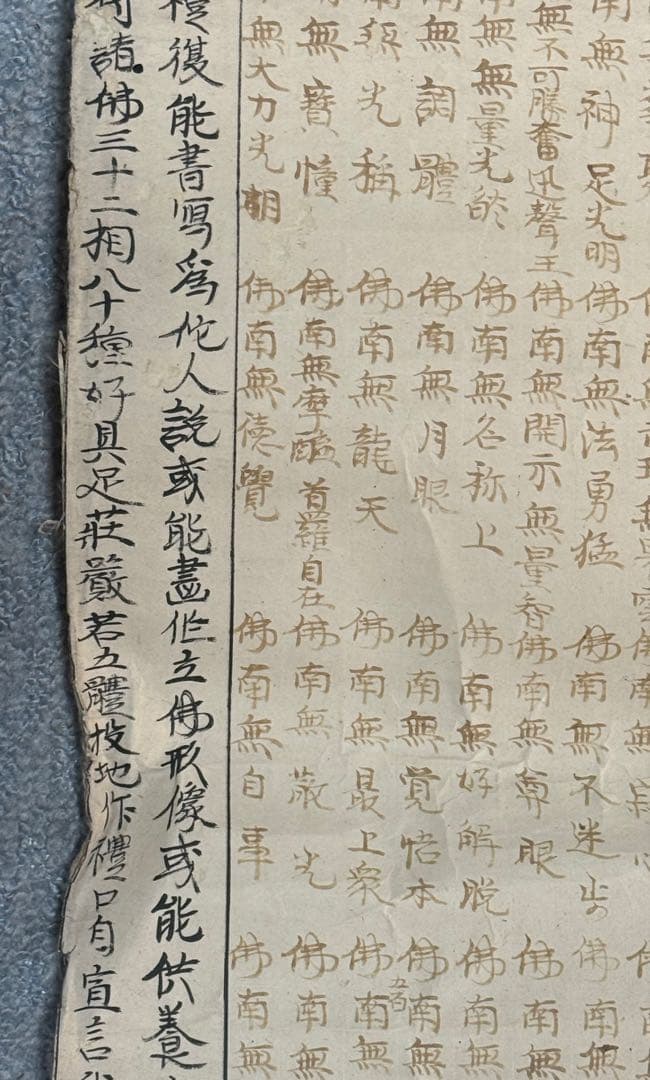 南無
神足光明佛南無法勇猛佛南無不迷步佛南無
無不可勝奮迅聲王佛南無開示無量智佛南無尊眼佛南無
無無量光佛南無名称上佛南無好解脱佛南無
無調體佛南無月眼佛南無覚悟本佛南無
五百
光稱佛南無龍天佛南無最上衆佛南無
無寶幢佛南無摩醯首羅自在佛南無嚴光佛南無
無大力光明佛南無德覺佛南無自事佛南無
復能書寫為佗人説或能畫作立佛形像或能供養
諸佛三十二相八十種好具足莊嚴若五體投地作禮口自宣言